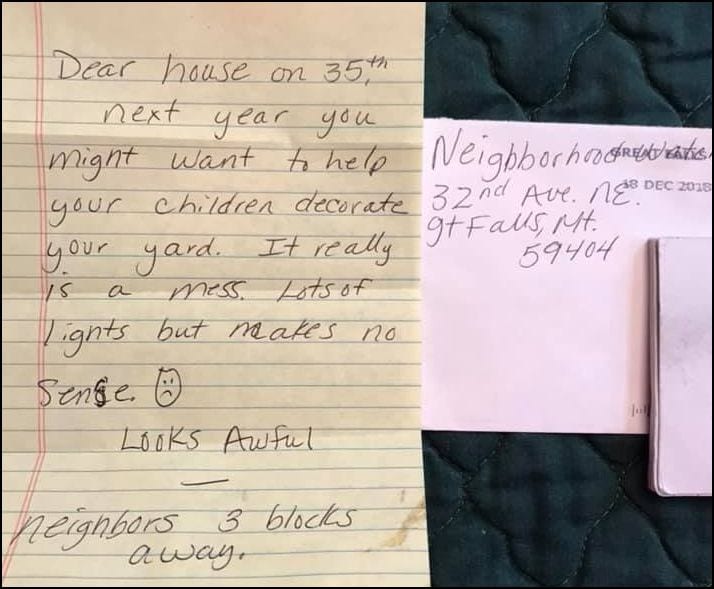 Dear house on 35th,
next year you
might want to help
your children decorate
your yard. It really
is a mess. Lots of
lights but makes no
sense. ☹
LOOKS AWFUL
—
neighbors 3 blocks
away.
Neighborhood
GREAT FALLS
32nd Ave. NE.
18 DEC 2018
gt Falls, Mt.
59404